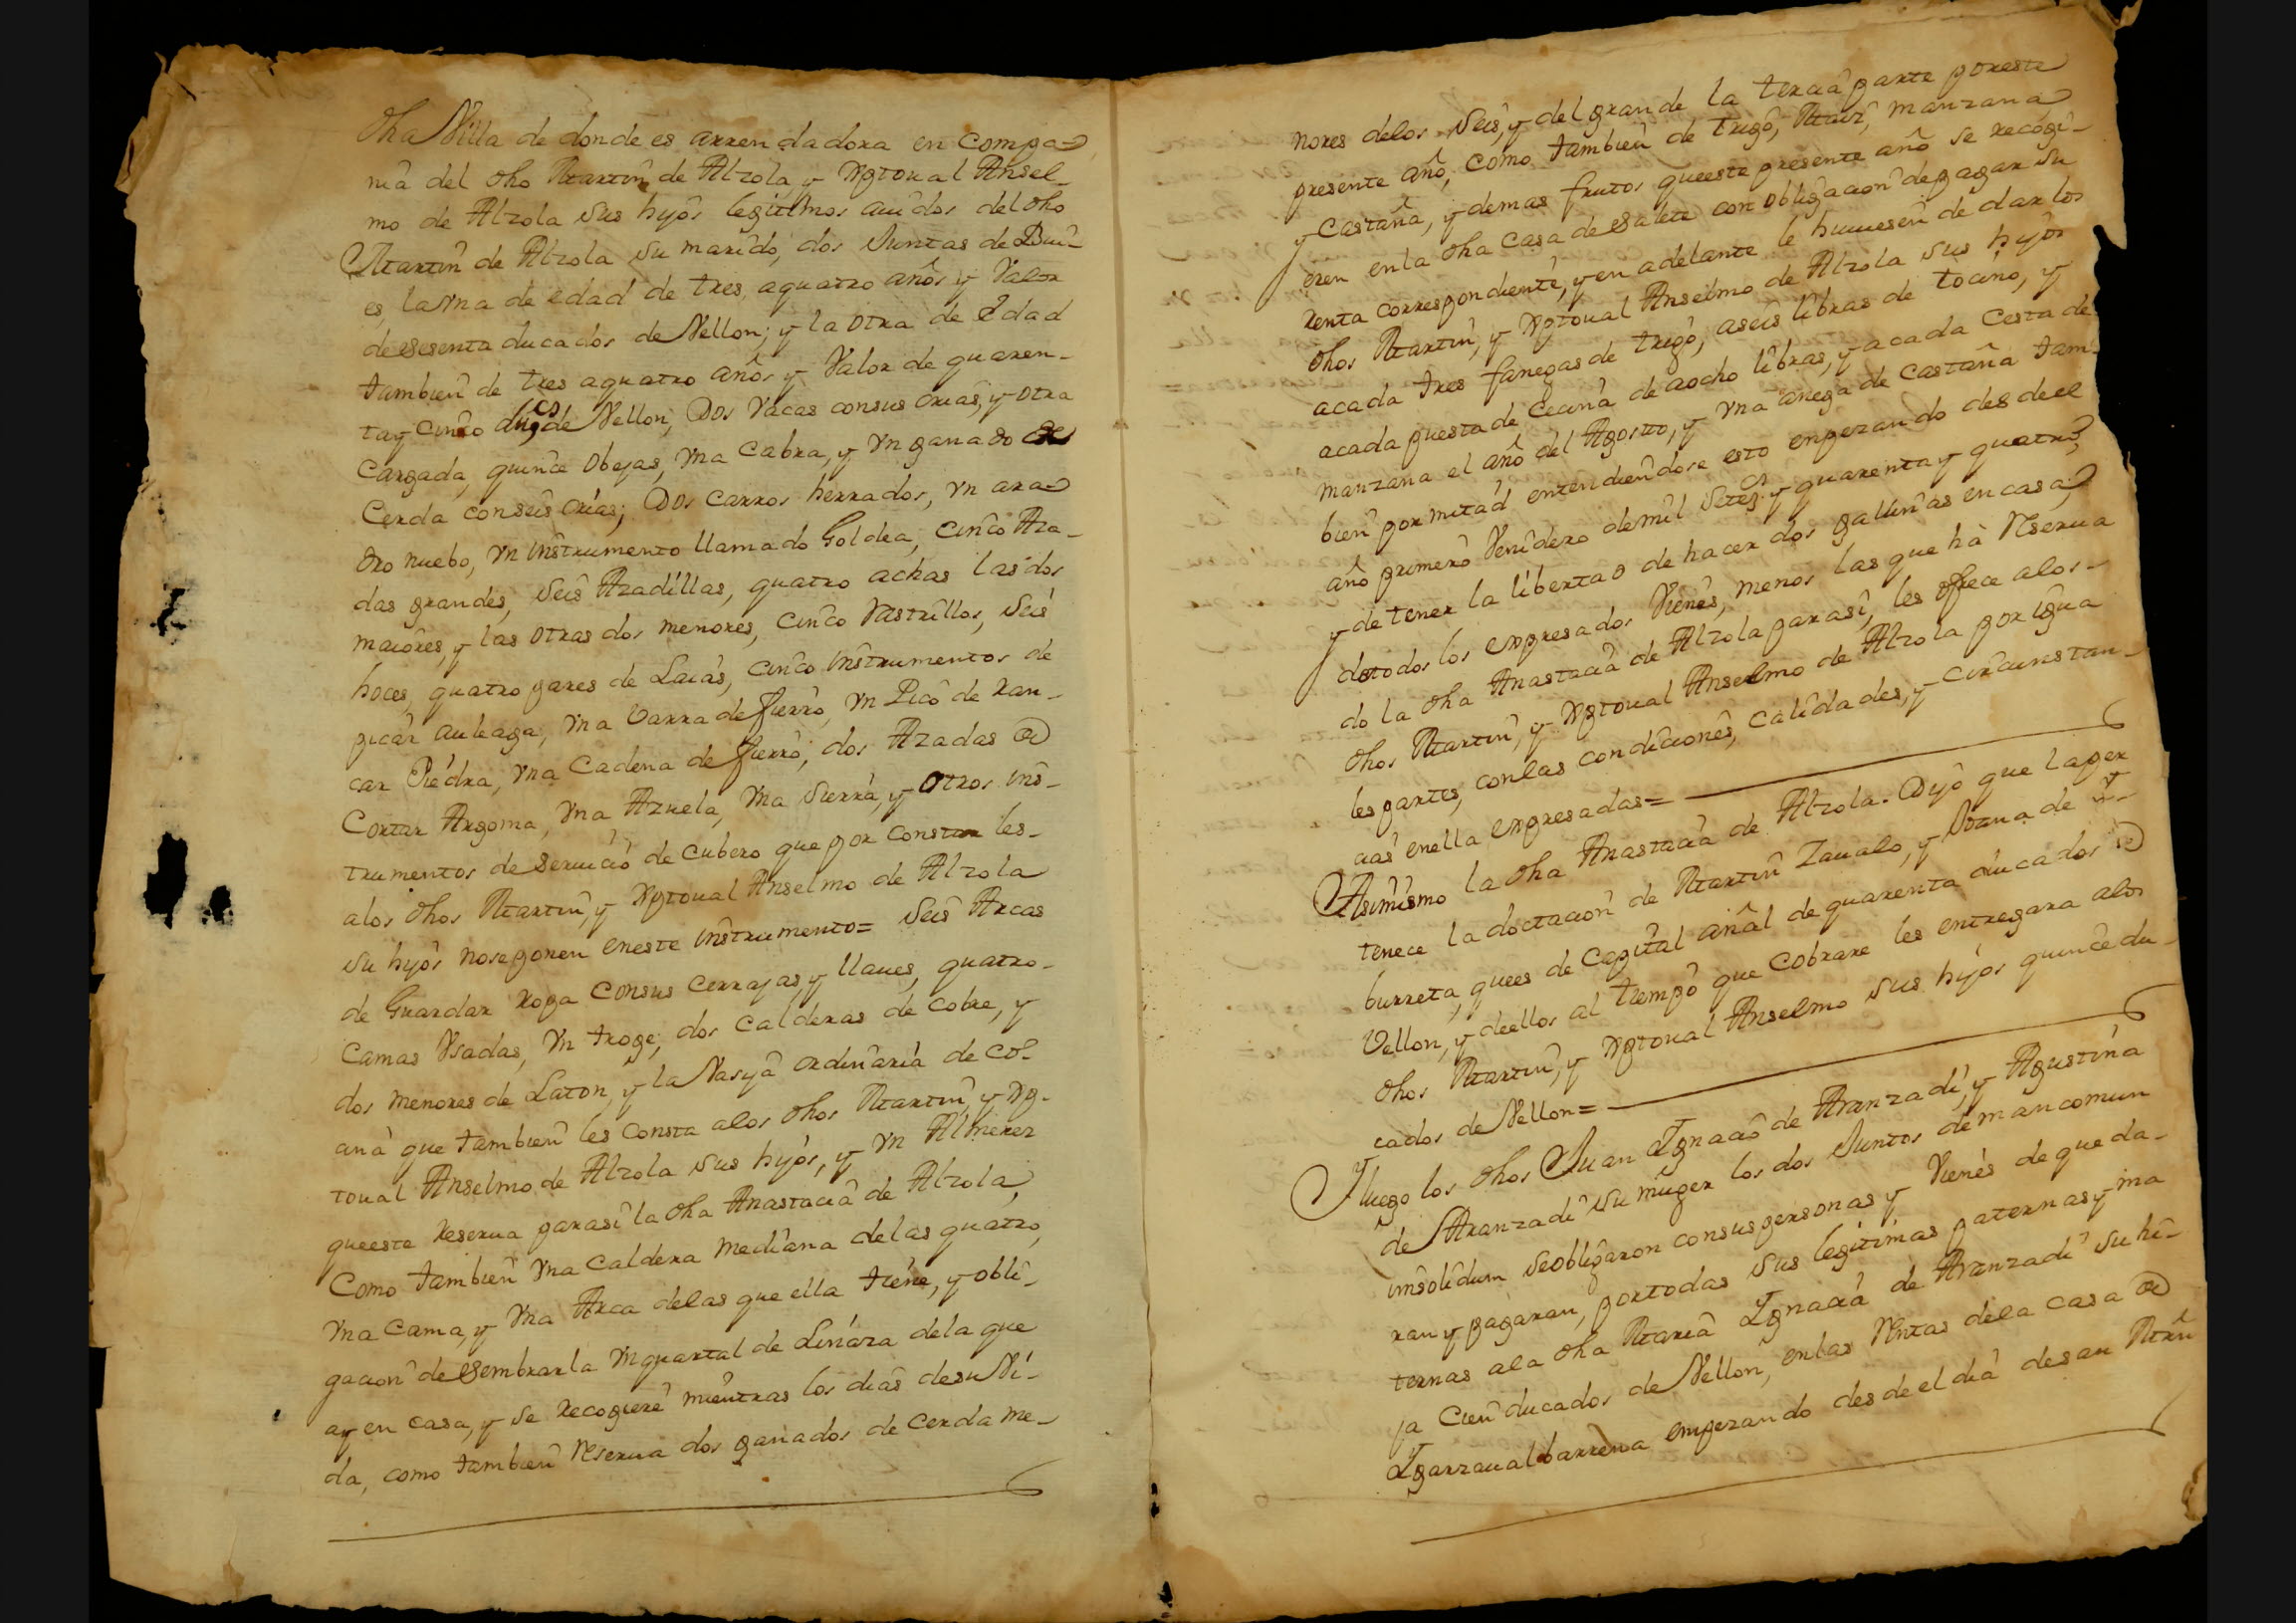 dha Villa de donde es arrendadora en Compa-
nia del dho Martin de Alzola, y Xptoual Ansel-
mo de Alzola sus hijos legitimos auidos del dho
Martin de Alzola su marido, dos Juntas de Buei-
es, la vna de edad de tres, a quatro años y Valor
de sesenta ducados de Vellon; y la otra de edad
tambien de tres a quatro años y Valor de quaren-
ta y cinco ducs de Vellon; Dos Vacas con sus crias, y otra
Cargada, quince obejas, vna Cabra, y vn ganado de
Cerda con seis crias; Dos carros herrados, vn ara-
dro nuebo, vn instrumento llamado Goldea, cinco Aza-
das grandes, seis Azadillas, quatro achas las dos
maiores, y las otras dos menores, cinco rastrillos, seis
hoces, quatro pares de Laias, cinco instrumentos de
picar auleaga, vna varra de fierro, vn Pico de ran-
car Piedra, vna Cadena de fierro, dos Azadas de
Cortar Argoma, vna Azuela, vna sierra, y otros ins-
trumentos de seruicio de cubero que por constar les-
alos dhos Martin, y Xptoual Anselmo de Alzola
su hijos nose ponen en este instrumento= seis Arcas
de Guardar ropa con sus cerrajas y llaues, quatro-
Camas vsadas, vn troge, dos calderas de cobre, y
dos menores de Laton, y la Vasija ordinaria de co-
cina que tambien les consta alos dhos Martin, y Xp-
toual Anselmo de Alzola sus hijos, y vn Almirez
que este reserua para si la dha Anastacia de Alzola,
Como tambien vna caldera mediana delas quatro,
vna cama, y vna Arca delas que ella tiene, y obli-
gacion de sembrarla vn quartal de Linaza dela que
ay en casa, y se recogiere mientras los dias de su Vi-
da, como tambien reserua dos ganados de cerda me-
nores delos seis, y del grande la tercia parte por este
presente año, como tambien de trigo, Maiz, manzana
y Castaña, y demas frutos que este presente año se recogi-
eren en la dha casa de esalete con obligacion de pagar su
renta correspondiente, y en adelante le huuiesen de dar los
dhos Martin, y Xptoual Anselmo de Alzola sus hijos
acada tres fanegas de trigo, a seis libras de tocino, y
acada puesta de Cecina de a ocho libras, y acada Cesta de
manzana el año del Agosto, y vna anega de castaña tam-
bien por mitad entendiendose esto enpezando desde el
año primero Venidero de mil setecs y quarenta y quatro,
y de tener la libertad de hacer dos gallinas en casa,
de todos los expresados Vienes, menos las que há reserua
do la dha Anastacia de Alzola para si, les ofrece alos-
dhos Martin, y Xptoual Anselmo de Alzola por igua
les partes, con las condiciones, calidades, y circunstan-
cias en ella expresadas=
Asimismo la dha Anastacia de Alzola. Dijo que la per
tenece la doctacion de Martin Zaualo, y Joana de
burreta, que es de Capital de quarenta ducados de
Vellon, y de ellos al tiempo que cobrare les entregara alos
dhos Martin, y Xptoual Anselmo sus hijos quince du-
cados de Vellon=
Y luego los dhos Juan Ignacio de Aranzadi, y Agustina
de Aranzadi su muger los dos Juntos de mancomun
insolidum se obligaron con sus personas y Vienes de que da-
ran y pagaran, por todas sus legitimas paternas y ma
ternas a la dha Maria Ignacia de Aranzadi su hi-
ja Cien ducados de Vellon, en las rentas dela casa de
Ygarzaualbarrena enpezando desde el dia de san Mrn